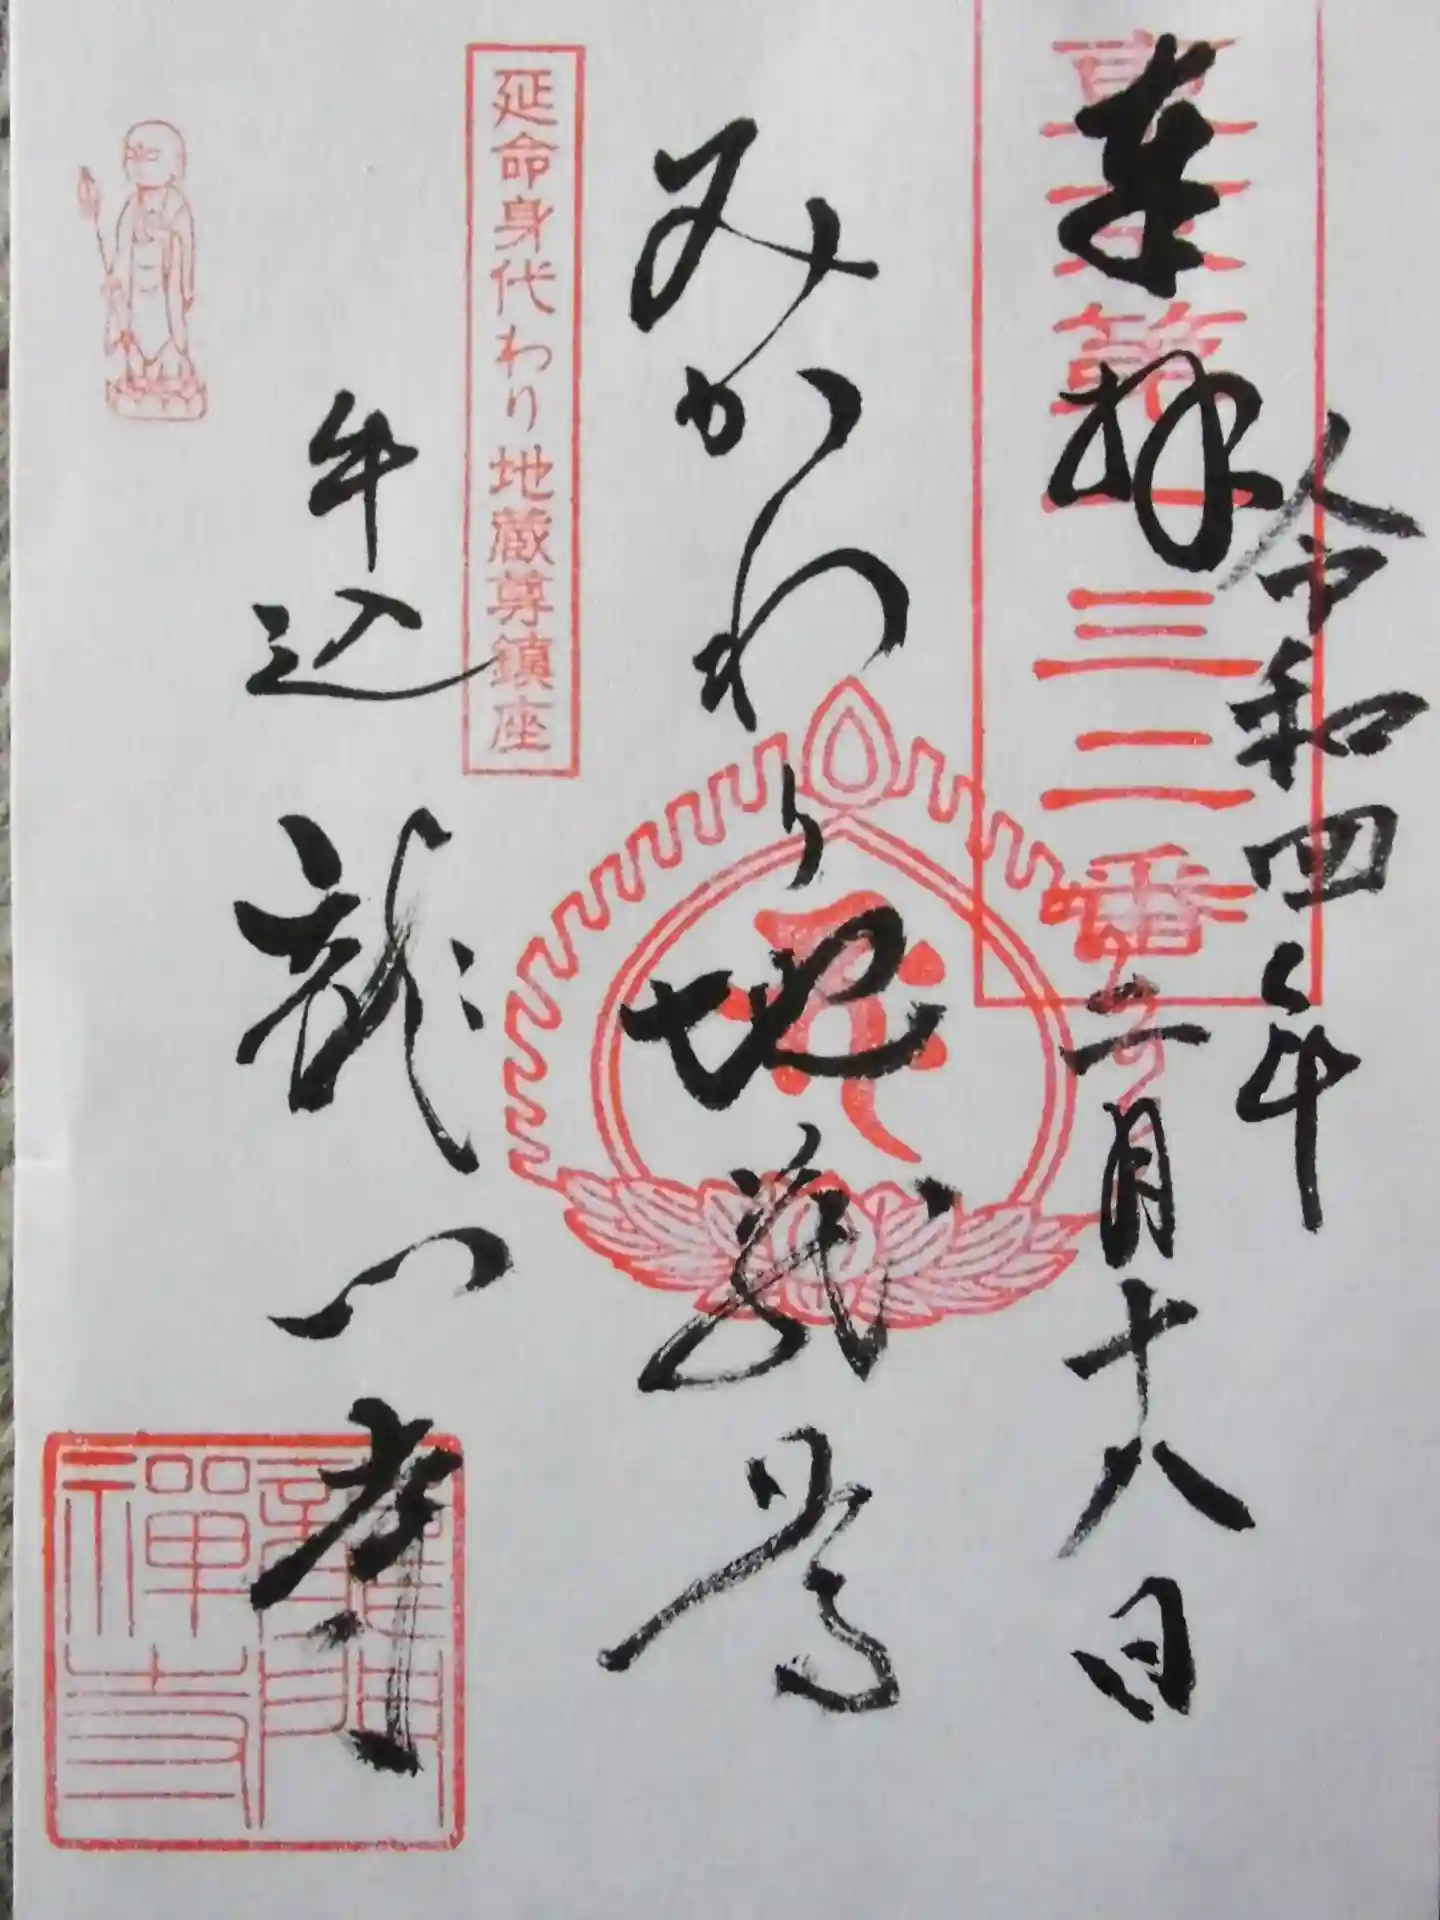 令和四年
奉拝
二月十八日
三二番
みかわり地蔵尊
延命身代わり地蔵尊鎮座
牛込
龍門寺
龍門
禪寺